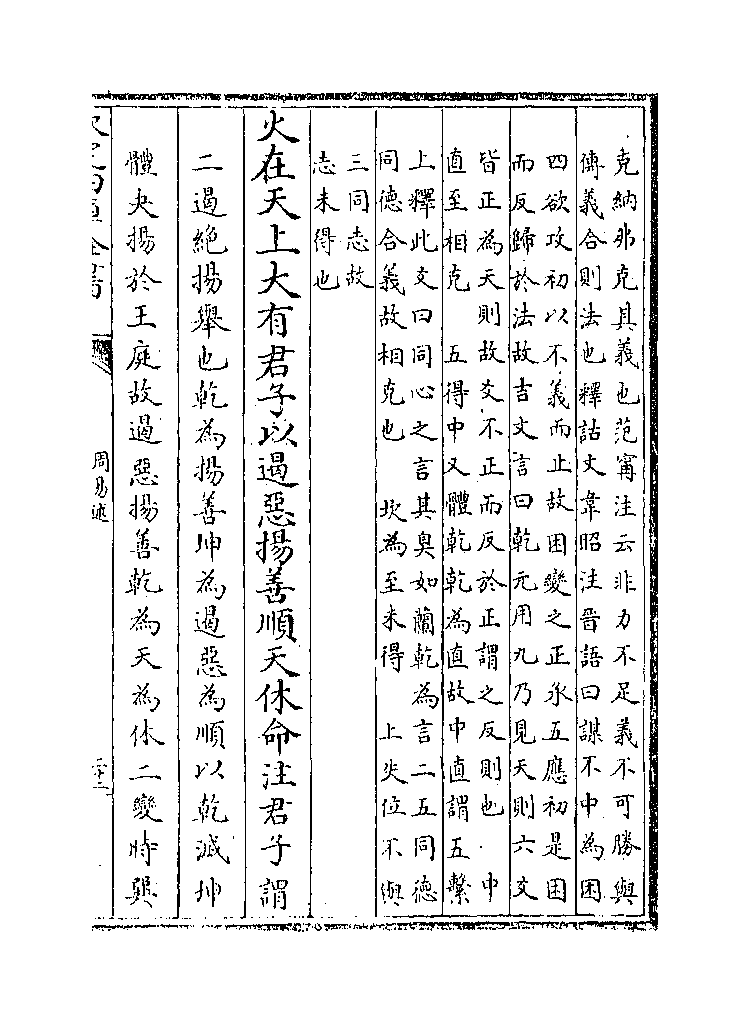 克納弗克其義也范甯注云非力不足義不可勝與
傳義合則法也釋詁文韋昭注晉語曰謀不中為困
四欲攻初以不義而止故困變之正承五應初是困
而反歸於法故吉文言曰乾元用九乃見天則六爻
皆正為天則故爻不正而反於正謂之反則也 中
直至相克 五得中又體乾乾為直故中直謂五繫
上釋此文曰同心之言其臭如蘭乾為言二五同德
同德合義故相克也 坎為至未得 上失位不與
三同志故
志未得也
火在天上大有君子以遏惡揚善順天休命注君子謂
二遏絶揚舉也乾為揚善坤為遏惡為順以乾滅坤
體夬揚於王庭故遏惡揚善乾為天為休二變時巽
周易述